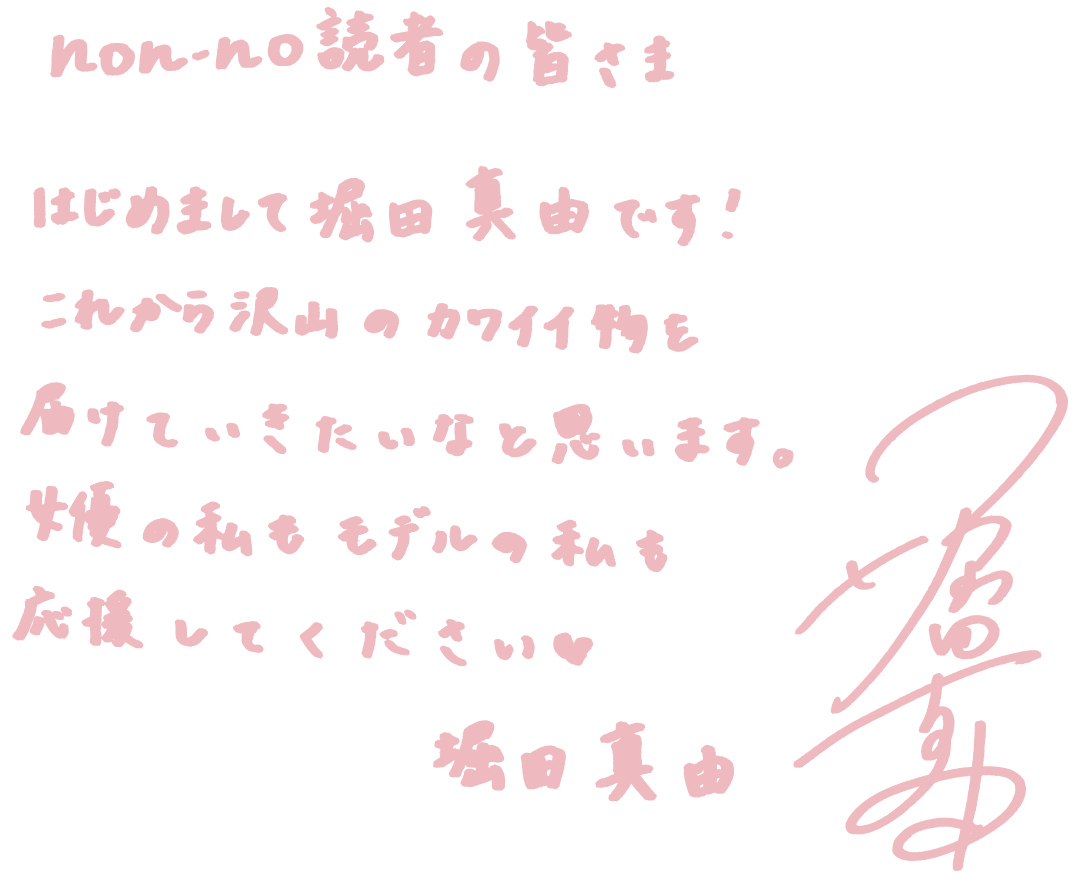 non-no読者の皆さま
はじめまして堀田真由です!
これから沢山のカワイイ物を
届けていきたいなと思います。
女優の私もモデルの私も
応援してください♥
堀田真由